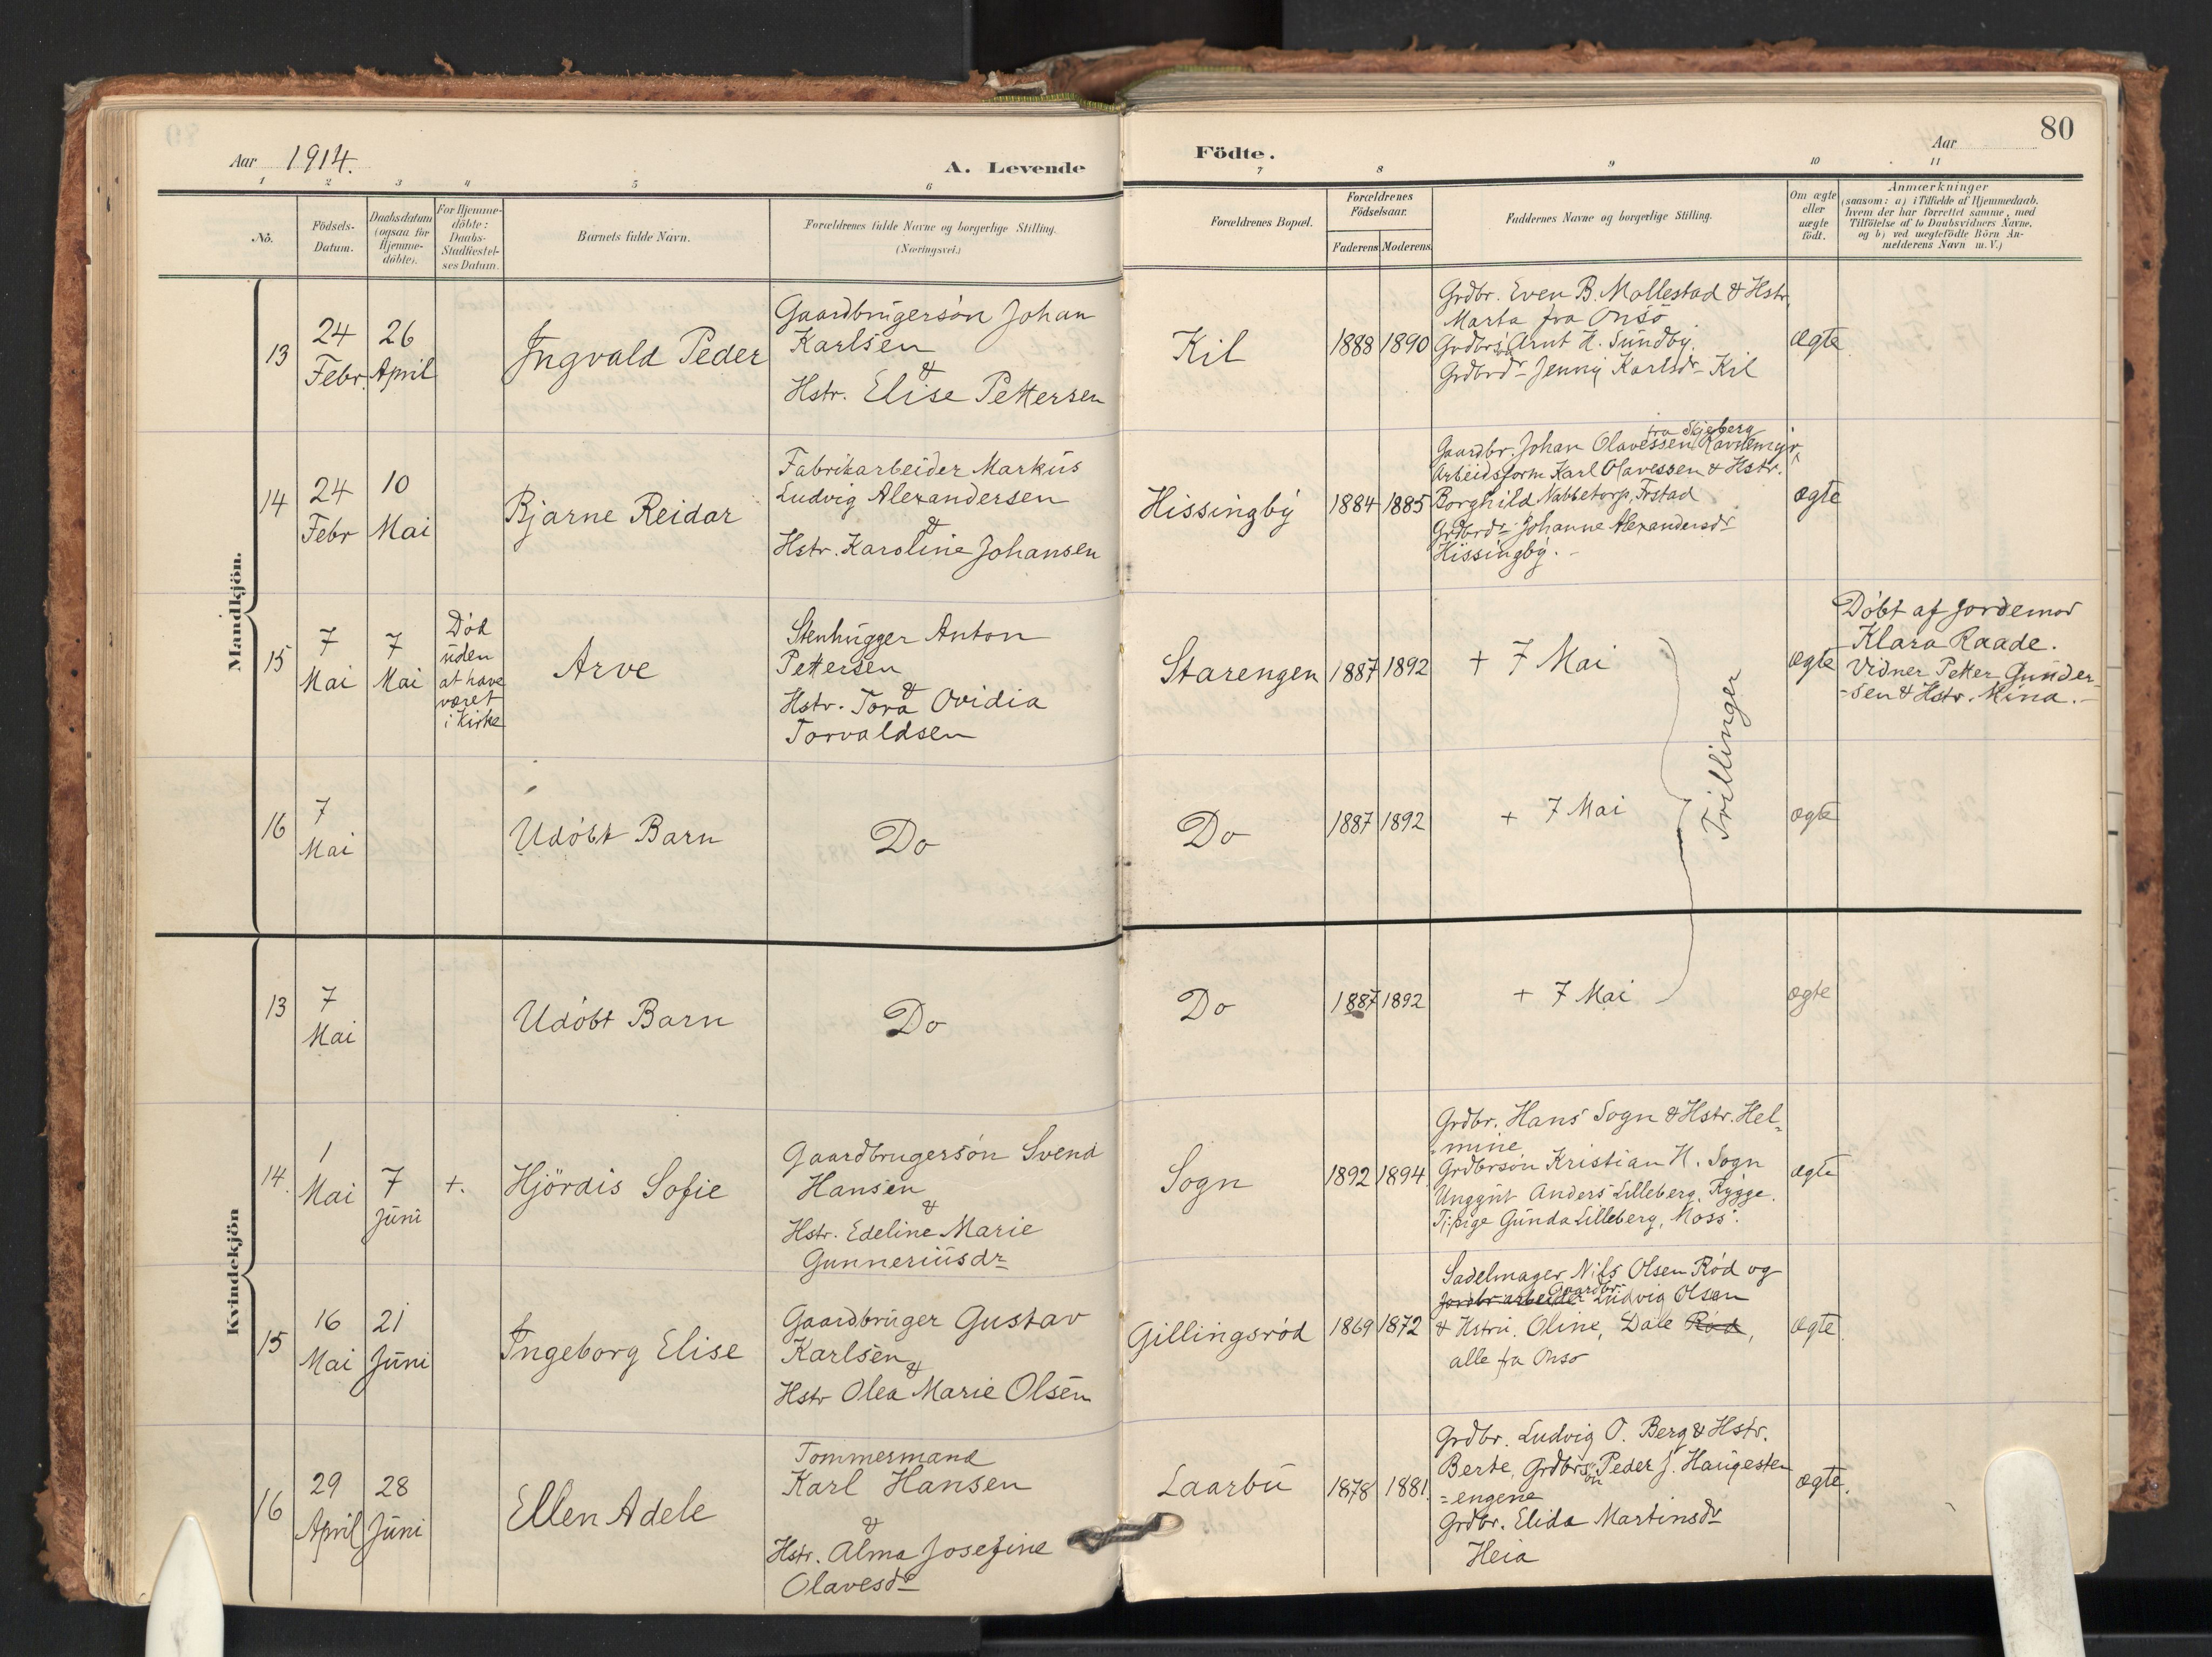 Aar 1914.
A. Levende
Födte.
Aar
80
1 2 3 4 5 6 7 8 9 10 11
No.
Födsels-
Datum.
Daabsdatum
(ogsaa for
Hjemme-
döbte).
For Hjemme-
döbte:
Daabs-
Stadfæstel-
ses Datum.
Barnets fulde Navn.
Forældrenes fulde Navne og borgerlige Stilling.
(Næringsvei.)
Forældrenes Bopæl.
Forældrenes
Födselsaar.
Faderens Moderens
Faddernes Navne og borgerlige Stilling.
Om ægte
eller
uægte
födt.
Anmærkninger
(saasom: a) i Tilfælde af Hjemmedaab,
hvem der har forrettet samme, med
Tilföielse af to Daabsvidners Navne,
og b) ved uegtefödte Börn An-
melderens Navn m. V.)
Mandkjön.
13
24
Febr.
26
April
Ingvald Peder
Gaardbrugersön Johan
Karlsen
&
Hstr. Elise Pettersen
Kil
1888 1890
Grdbr. Even B. Mollestad & Hstr.
Marta fra Onsö
Grdbrsön Arnt H. Sundby.
Grdbrdr Jenny Karlsdr Kil
ægte
14
24
Febr
10
Mai
Bjarne Reidar
Fabrikarbeider Markus
Ludvig Alexandersen
&
Hstr. Karoline Johansen
Hissingby
1884 1885
fra Skjeberg
Gaardbr. Johan Olavessen Ravnemyr,
Arbeidsform Karl Olavessen & Hstr.
Borghild Nabbetorp, Frstad
Grdbrdr Johanne Alexandersdr
Hissingby.
ægte
15
7
Mai
7
Mai
Död
uden
at have
været
i Kirke
Arve
Stenhugger Anton
Pettersen
&
Hstr. Tora Ovidia
Torvaldsen
Starengen
1887 1892
+ 7 Mai
Trillinger
ægte
Döbt af Jordemor
Klara Raade.
Vidner Petter Gunder-
-sen & Hstr. Mina.
16
7
Mai
Udöbt Barn
Do
Do
1887 1892
+ 7 Mai
ægte
Kvindekjön
13
7
Mai
Udöbt Barn
Do
Do
1887 1892
+ 7 Mai
ægte
14.
1
Mai
7
Juni
+.
Hjördis Sofie
Gaardbrugersön Svend
Hansen
&
Hstr. Edeline Marie
Gunneriusdr
Sogn
1892 1894
Grdbr. Hans Sogn & Hstr. Hel-
-mine
Grdbrsön Kristian H. Sogn
Unggut Anders Lilleberg, Rygge.
Tj:pige Gunda Lilleberg, Moss.
ægte
15
16
Mai
21
Juni
Ingeborg Elise
Gaardbruger Gustav
Karlsen
&
Hstr Olea Marie Olsen
Gillingsröd
1869 1872
Sadelmager Nils Olsen Röd og
Gaardbr
Jordbrarbeider Ludvig Olsen
& Hstru. Oline, Dale Röd,
alle fra Onsö
ægte
16
29
April
28
Juni
Ellen Adele
Tommermand
Karl Hansen
&
Hstr. Alma Josefine
Olavesdr
Laarbu
1878 1881.
Grdbr. Ludvig O. Berg & Hstr.
Berte, Grdbrsön Peder J. Haugesten
-engene
Grdbr. Elida Martinsdr
Heia
ægte.